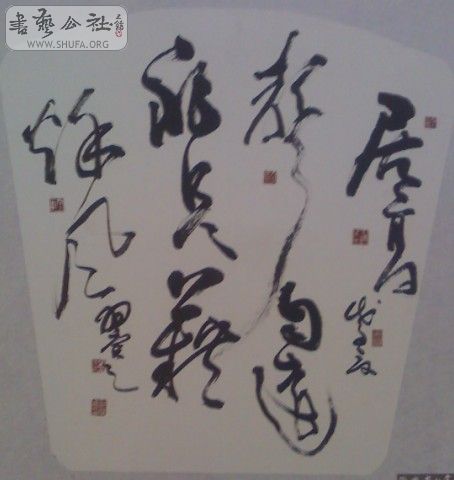 書藝公社
WWW.SHUFA.ORG
居高
聲自遠
非是藉
秋風